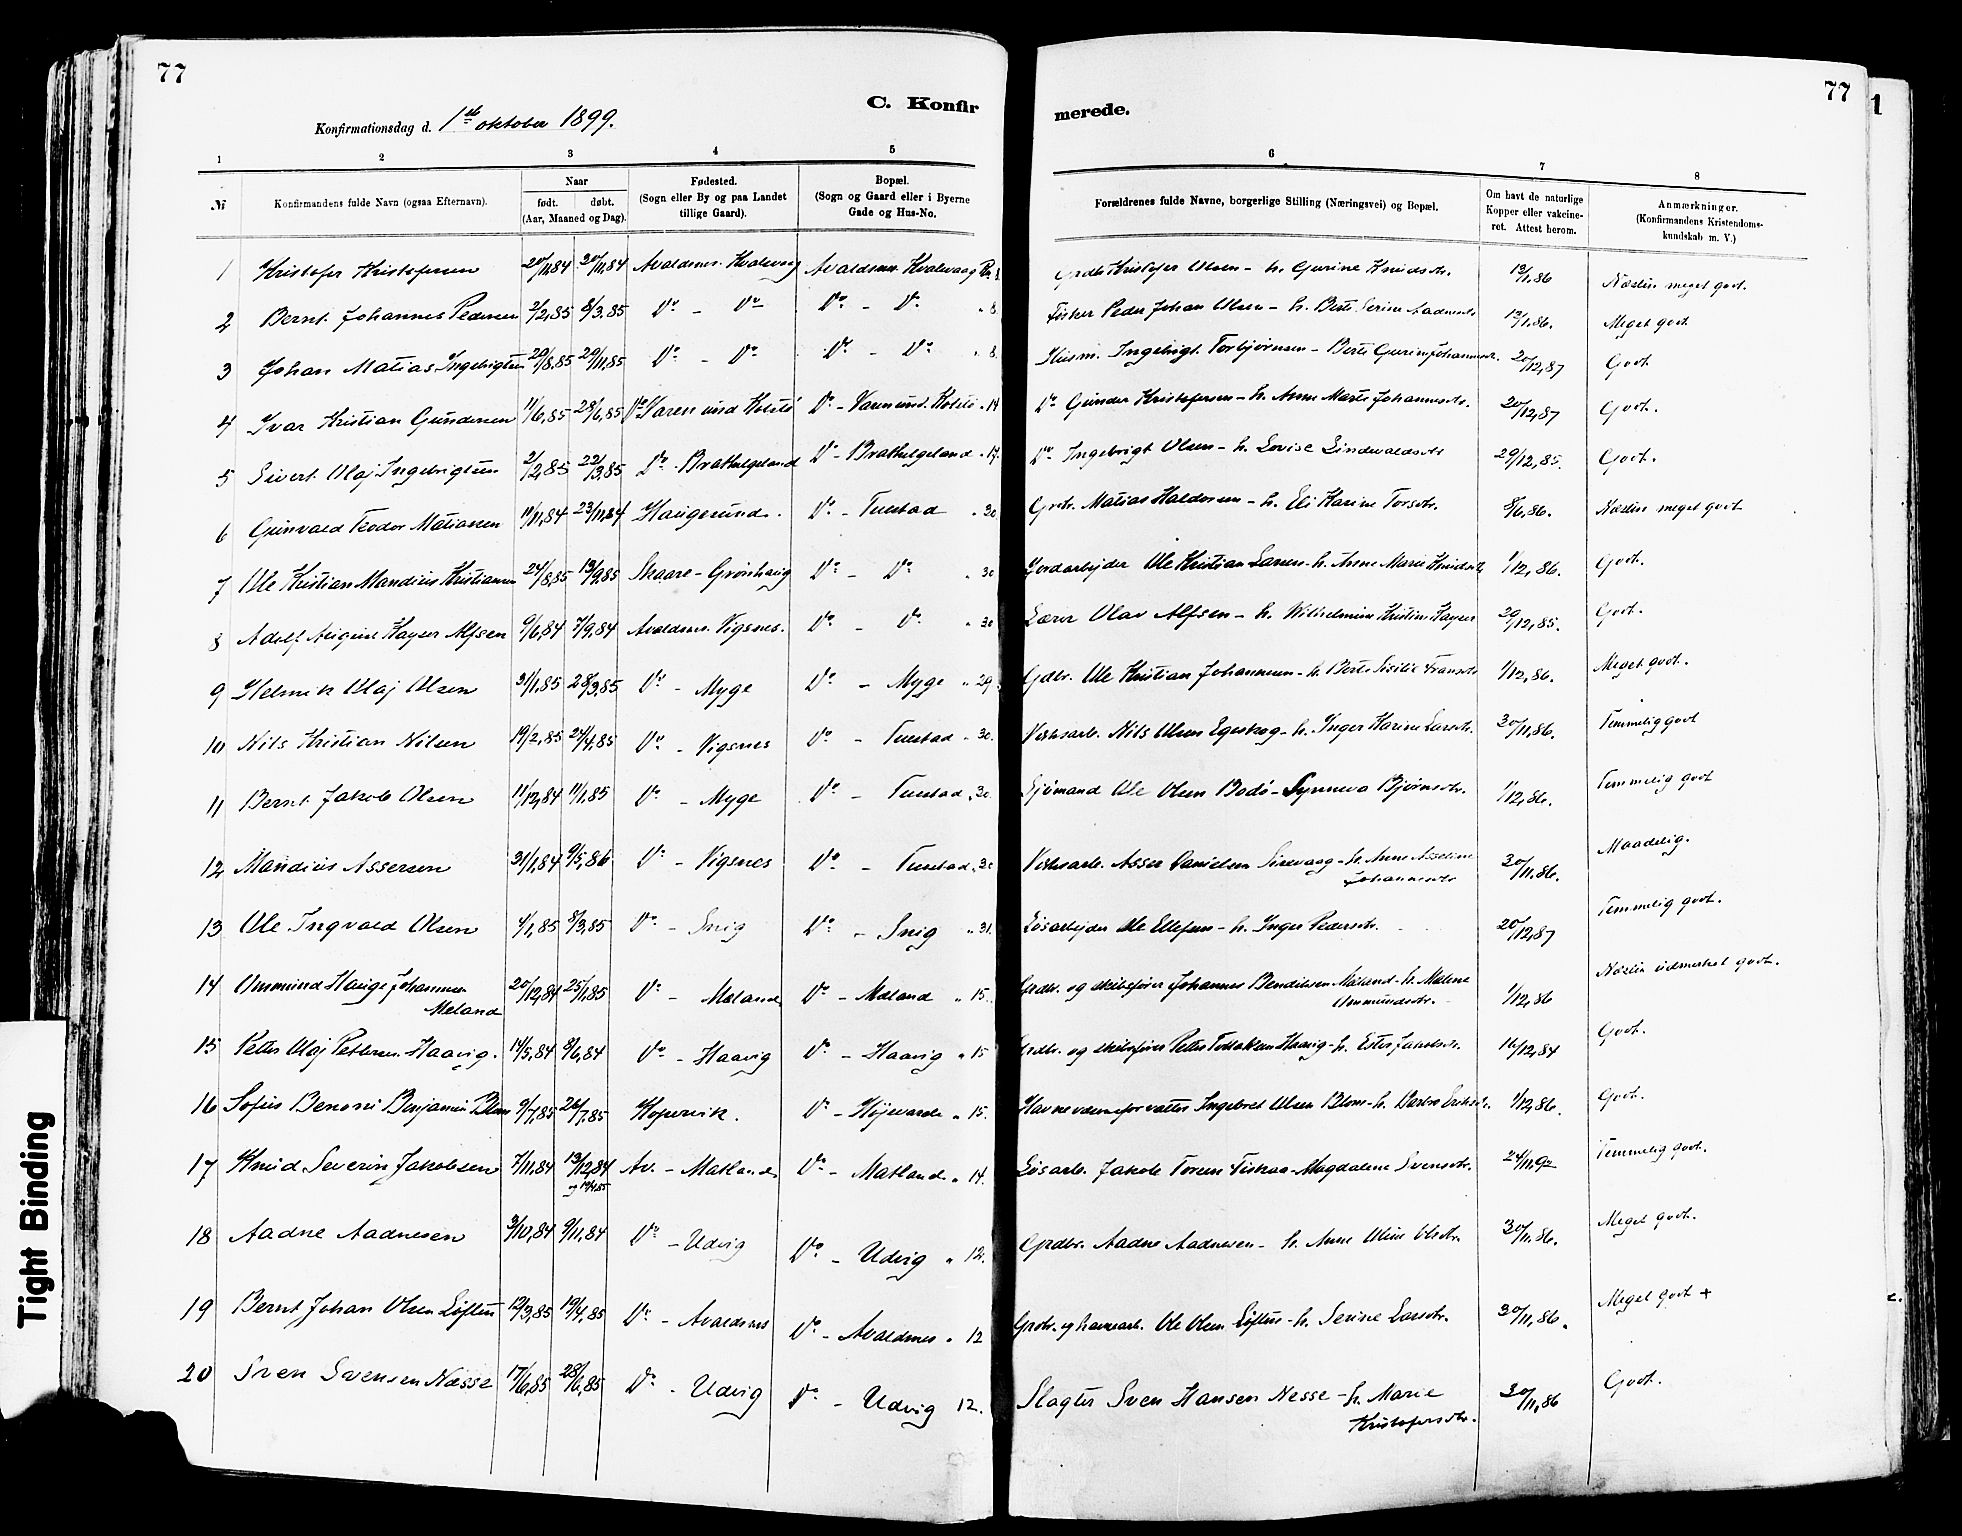 77
77
1
C. Konfir
merede.
Konfirmationsdag d. 1ste oktober 1899.
1 2 3 4 5 6 7 8
№
Konfirmandens fulde Navn (ogsaa Efternavn).
Naar
født. døbt.
(Aar, Maaned og Dag).
Fødested.
(Sogn eller By og paa Landet
tillige Gaard).
Bopæl.
(Sogn og Gaard eller i Byerne
Gade og Hus-No.
Forældrenes fulde Navne, borgerlige Stilling (Næringsvei) og Bopæl.
Om havt de naturlige
Kopper eller vakcine-
ret. Attest herom.
Anmærkninger.
(Konfirmandens Kristendoms-
kundskab m. V.)
1 Kristofer Kristofersen 20/11,84 Avaldsnes. Kvalevaag Avaldsnes Kvalevaag 8. Kristofer Olsen - h. Gurine Knudsdtr. 13/1,86 Næsten meget godt.
2 Bernt Johannes Pedersen 2/2,85 8/3.85 Do - Do Do - Do " 8. Fisker Peder Johan Olsen - h. Berte Serine Aadnesdtr 13/1,86. Meget godt
3 Johan Matias Ingebrigtsen 20/8,85 29/11,85 Do - Do Do - Do " 8. Husm. Ingebrigt Torbjørnsen - Berte Gurine Johannesdtr. 20/12,87 Godt
4 Ivar Kristian Gundersen 11/6,85 28/6,85 Do Do - " 14 Do Gunder Kristofersen - h. Anne Marte Johannesdtr. 20/12,87 Godt.
5 Sivert Olaj Ingebrigtsen 2/2,85 22/3,85 Do - Brathelgeland Do - Brathelgeland " 17. Do Ingebrigt Olsen - h. Lovise Lindevaldsdtr 29/12,85. Godt.
6 Gunvald Teodor Matiassen 11/11,84 23/11,84 Haugesund. Do - Tuestad " 30 Grdbr. Matias Haldorsen - h. Eli Karine Torsdtr. 8/6,86. Næsten meget godt
7 Ole Kristian Mandius Kristiansen 24/8,85 13/9,85 Skaare - Grønhaug Do - Do " 30 Jordarbejder Ole Kristian Larsen - h. Anne Marie Knudsdtr 1/12,86. Godt.
8 Adolf August Kayser Alfsen 9/6,84 7/9,84 Avaldsnes. Vigsnes. Do - Do " 30 Lærer Olav Alfsen - h. Wilhelmine Kristine Kayser 29/12,85. Godt.
9 Helmik Olaj Olsen 31/1,85 28/3,85 Do - Myge Do - Myge " 29. Gdbr. Ole Kristian Johannesen - h. Berte Sisilie Fransdtr 1/12,86. Meget godt.
10 Nils Kristian Nilsen 19/2,85 24/4,85 Do - Vigsnes Do - Tuestad " 30. Verksarb. Nils Olsen Egeskog - h. Inger Karine Larsdtr. 30/11,86. Temmelig godt
11 Bernt Jakob Olsen 11/12,84 11/1,85 Do - Myge Do - Tuestad " 30. Sjømand Ole Olsen Bodø - Synneva Bjørnsdtr. 1/12,86. Temmelig godt
12 Mandius Assersen 31/1,84 9/5,86 Do - Vigsnes Do - Tuestad " 30 Verksarb. Asser Danielsen Sirevaag - h. Anne Asseline
Johannesdtr 30/11,86. Maadelig.
13 Ole Ingvald Olsen 4/1,85 8/3,85 Do - Snig Do - Snig " 31. Løsarbejder Ole Ellefsen - h. Inger Pedersdtr. 20/12,87 Temmelig godt.
14 Ommund Hauge Johannesen
Meland 20/12,84 25/1,85 Do - Meland Do - Meland " 15. Grdbr. og skibsfører Johannes Bendiksen Meland - h. Malene
Ommundsdtr. 1/12,86 Næsten udmerket godt.
15 Petter Olaj Pettersen Haavig. 14/5,84 8/6,84 Do - Haavig Do - Haavig " 15 Grdbr. og skibsfører Petter Haavig - h. Ester Jakobsdtr. 16/12,84 Godt.
16 Sofus Benoni Benjamin Blom 9/7,85 26/7,85 Kopervik. Do - Højevarde " 15. Havnevæsensforvalter Ingebret Olsen Blom - h. Eriksdtr. 1/12,86. Godt.
17 Knud Severin Jakobsen 7/11,84 13/12,84
og 19/4,85 Av. - Matland Do - Matland " 14. Løsarb. Jakob Torsen Fiskaa - Magdalene Svensdtr. 24/11,92 Temmelig godt.
18 Aadne Aadnesen 3/10,84 9/11,84 Do - Udvig Do - Udvig " 12. Grdbr. Aadne Aadnesen - h. Anne Oline Olsdtr. 30/11,86. Meget godt.
19 Bernt Johan Olsen Løftus 12/3,85 19/4,85 Do - Avaldsnes Do - Avaldsnes " 12 Grdbr. og havnearb. Ole Olsen Løftus - h. Serine Larsdtr. 30/11,86. Meget godt +
20 Sven Svensen Nesse 17/6,85 28/6,85 Do - Udvig Do - Udvig 12. Slagter Sven Hansen Nesse - h. Marie
Kristofersdtr. 30/11,86 Godt.
Tight Binding